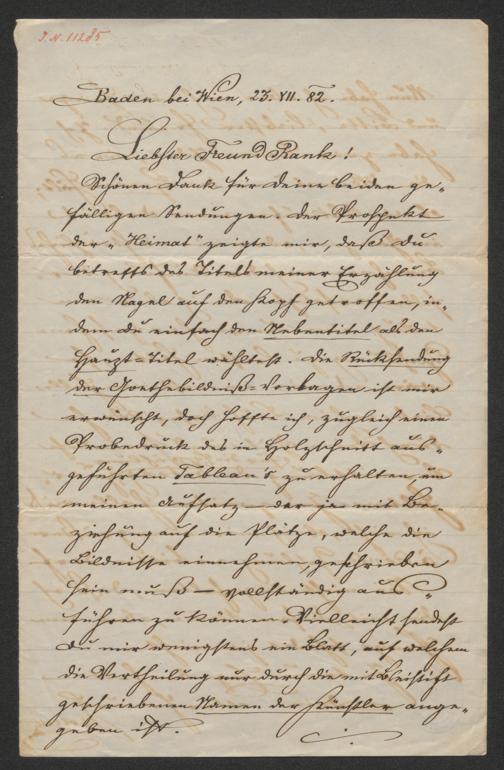 J.N. 11285
Baden bei Wien, 23. VII. 82.
Liebster Freund Rank!
Schönen Dank für Deine beiden ge-
fälligen Sendungen. Der Prospekt
der „Heimat" zeigte mir, daß Du
betreffs des Titels meiner Erzählung
den Nagel auf den Kopf getroffen, in-
dem Du einfach den Nebentitel als den
Haupt-Titel wähltest. Die Rücksendung
der Goethebildniß-Vorlagen ist mir
erwünscht, doch hoffte ich, zugleich einen
Probedruck des in Holzschnitt aus-
geführten Tableau's zu erhalten, um
meinen Aufsatz – der ja mit Be-
ziehung auf die Plätze, welche die
Bildnisse einnehmen, geschrieben
sein muß – vollständig aus-
führen zu können. Vielleicht sendest
Du mir wenigstens ein Blatt, auf welchem
die Vertheilung nur durch die mit Bleistift
geschriebenen Namen der Künstler ange-
geben ist.